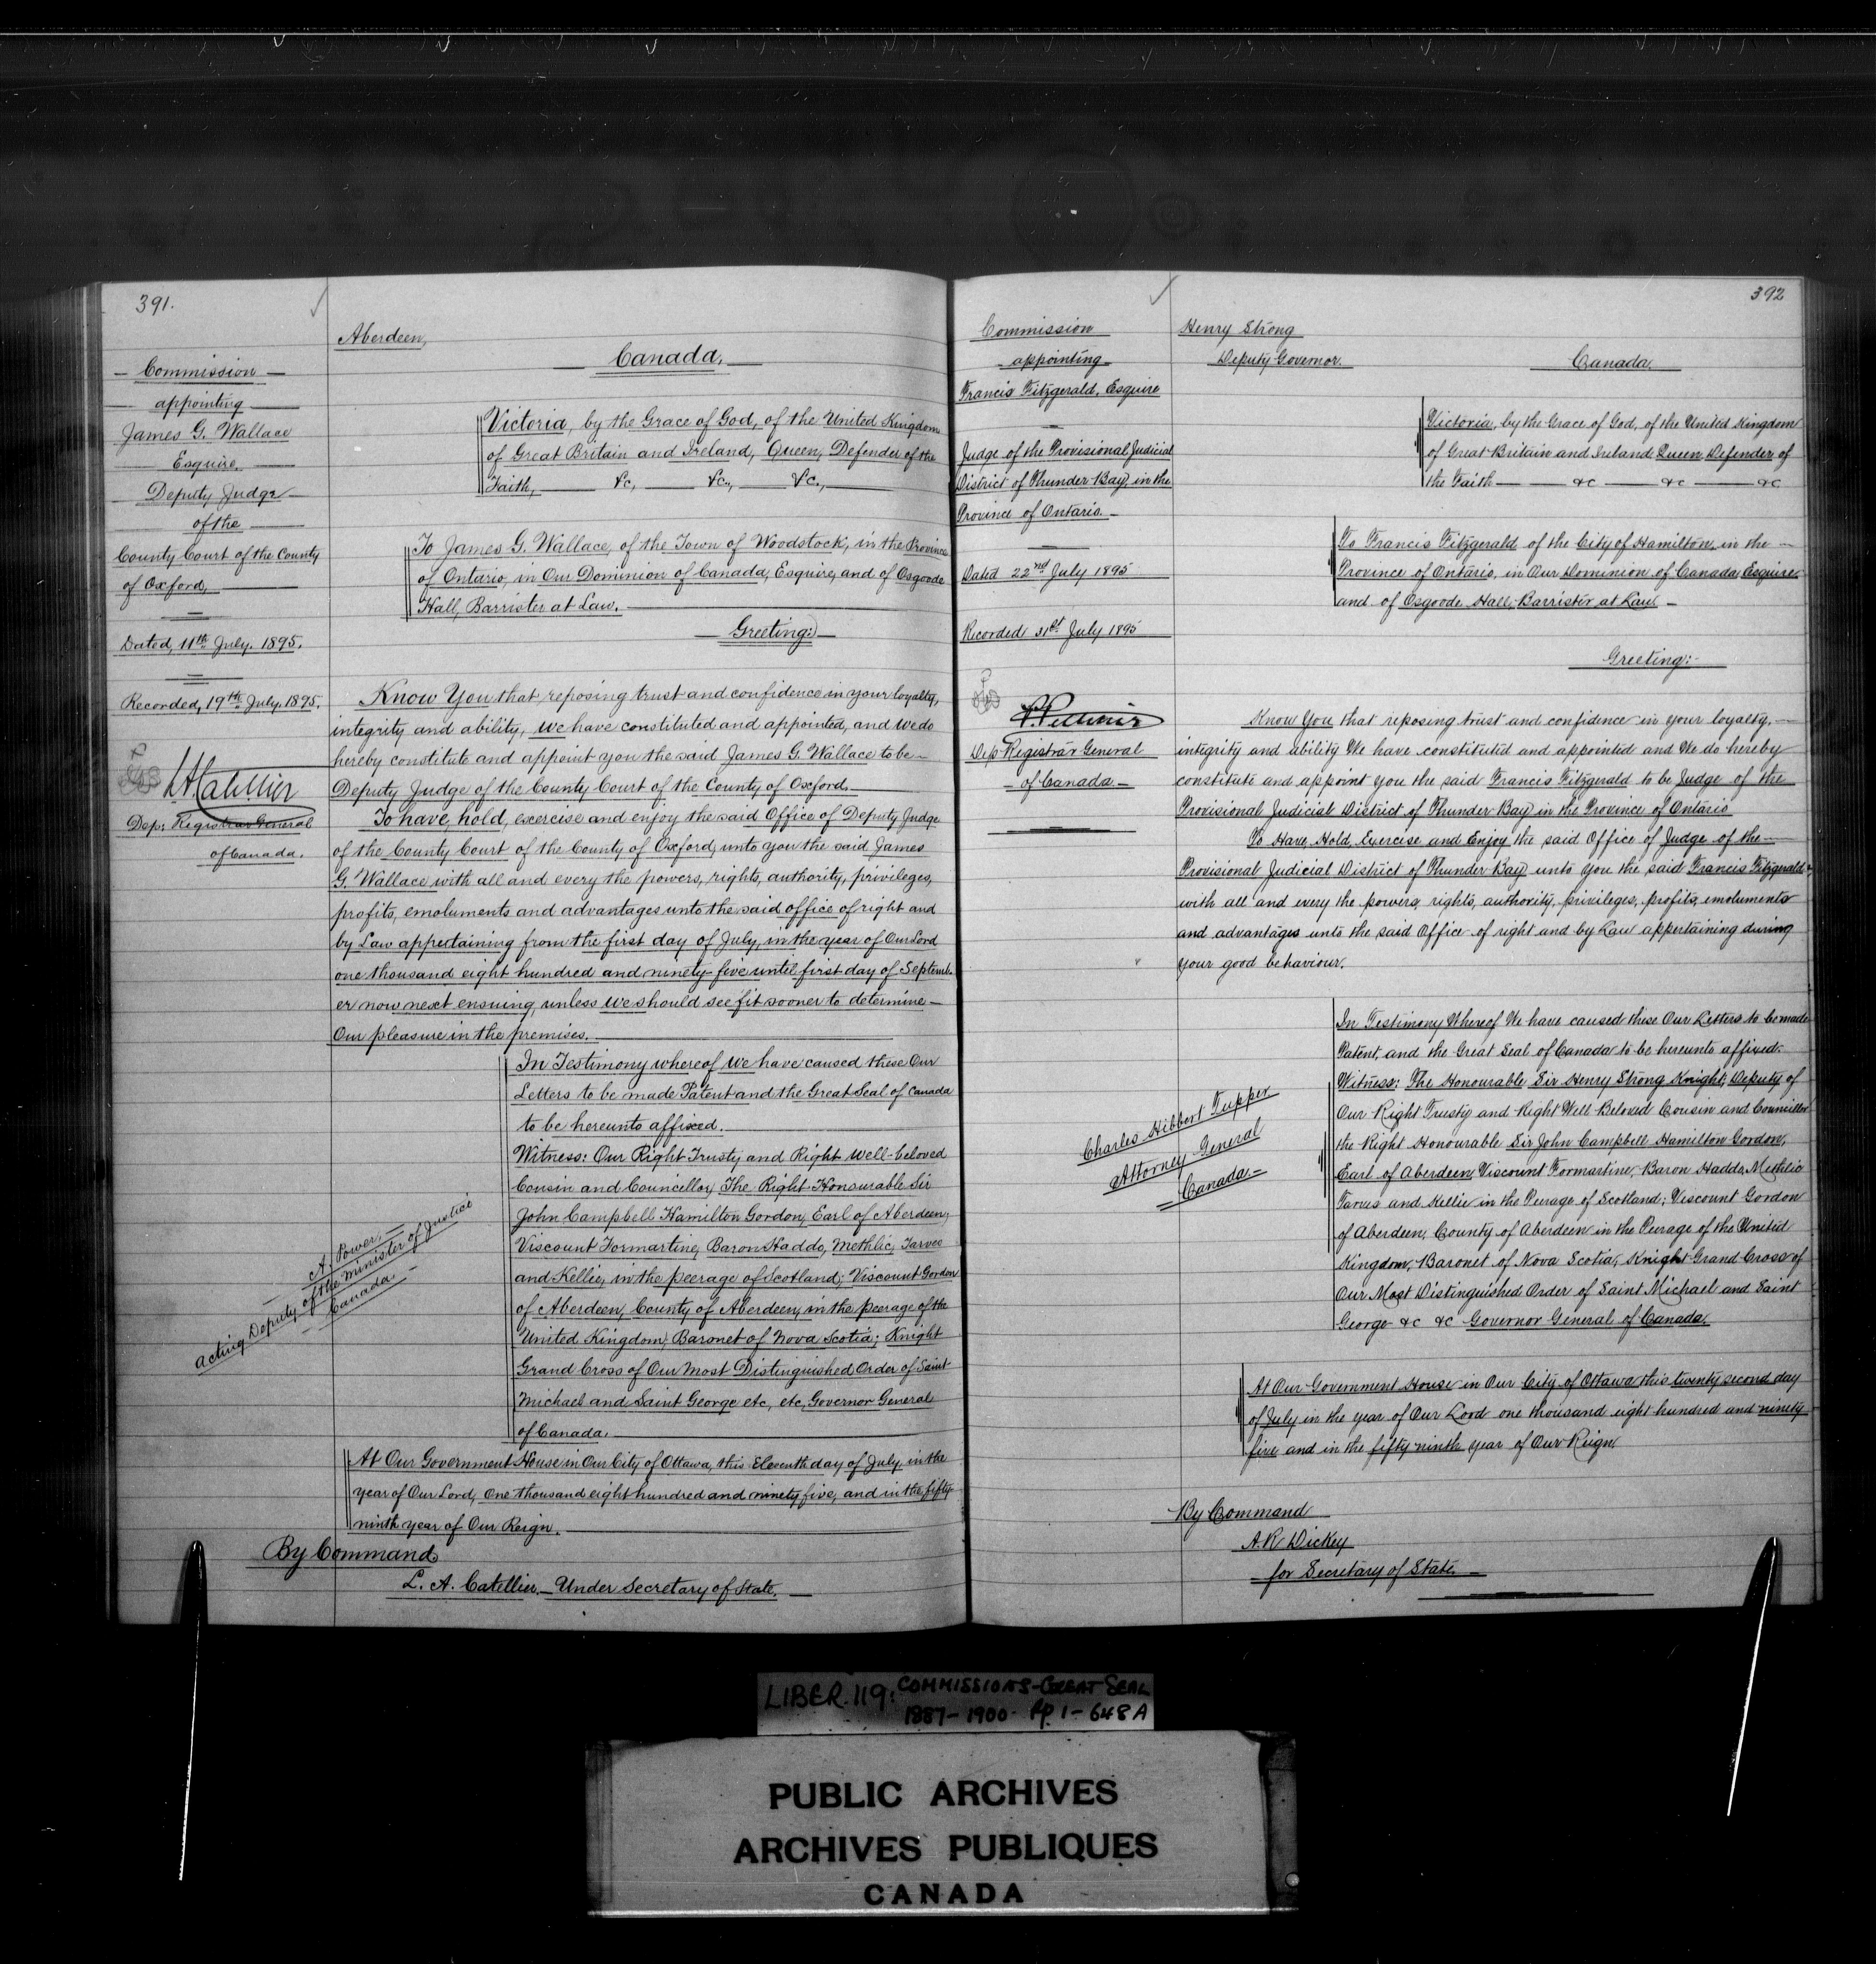 391.
Commission
appointing
James G. Wallace
Esquire.
Deputy Judge
of the
County Court of the County
of Oxford,
Dated, 11th July. 1895.
Recorded, 19th July, 1895.
L A Catellier
Dep: Registrar General
of Canada.
Aberdeen,
Canada,
Victoria, by the Grace of God, of the United Kingdom
of Great Britain and Ireland, Queen, Defender of the
Faith, &c, &c., &c.,
To James G. Wallace, of the Town of Woodstock, in the Province
of Ontario, in Our Dominion of Canada, Esquire, and of Osgoode
Hall, Barrister at Law.
Greeting:
Know You that reposing trust and confidence in your loyalty,
integrity and ability, we have constituted and appointed, and we do
hereby constitute and appoint you the said James G. Wallace to be
Deputy Judge of the County Court of the County of Oxford.
To have, hold, exercise and enjoy the said Office of Deputy Judge
of the County Court of the County of Oxford, unto you the said James
G. Wallace with all and every the powers, rights, authority, privileges,
profits, emoluments and advantages unto the said office of right and
by Law appertaining from the first day of July, in the year of Our Lord
one thousand eight hundred and ninety-five until first day of Septemb-
er now next ensuing, unless we should see fit sooner to determine
Our pleasure in the premises.
In Testimony whereof we have caused these Our
Letters to be made Patent and the Great Seal of Canada
to be hereunto affixed.
Witness: Our Right Trusty and Right well-beloved
Cousin and Councellor, The Right Honourable Sir
John Campbell Hamilton Gordon, Earl of Aberdeen;
Viscount Formartine, Baron Haddo, Methlic, Tarves
and Kellie, in the peerage of Scotland; Viscount Gordon
of Aberdeen, County of Aberdeen, in the peerage of the
United Kingdom; Baronet of Nova Scotia; Knight
Grand Cross of Our Most Distinguished Order of Saint
Michael and Saint George etc, etc, Governor General
of Canada.
A. Power,
Acting Deputy of the Minister of Justice
Canada
At Our Government House in Our City of Ottawa, this Eleventh day of July, in the
year of Our Lord, one thousand eight hundred and ninety five, and in the fifty
ninth year of Our Reign.
By Command
L. A. Catellier. Under Secretary of State.
392
Commission
appointing
Francis Fitzgerald, Esquire
Judge of the Provisional Judicial
District of Thunder Bay, in the
Province of Ontario.
Dated 22nd July 1895
Recorded 31st July 1895
P. Pelletier
Dep Registrar General
of Canada
Henry Strong
Deputy Governor.
Canada.
Victoria, by the Grace of God, of the United Kingdom
of Great Britain and Ireland Queen Defender of
the Faith &c &c &c
To Francis Fitzgerald of the City of Hamilton, in the
Province of Ontario, in Our Dominion of Canada Esquire,
and of Osgoode Hall, Barrister at Law.
Greeting:
Know You that reposing trust and confidence in your loyalty,
integrity and ability We have constituted and appointed and We do hereby
constitute and appoint you the said Francis Fitzgerald to be Judge of the
Provisional Judicial District of Thunder Bay in the Province of Ontario
To Have, Hold, Exercise and Enjoy the said Office of Judge of the
Provisional Judicial District of Thunder Bay unto you the said Francis Fitzgerald,
with all and every the powers, rights, authority, privileges, profits, emoluments
and advantages unto the said Office of right and by Law appertaining during
your good behaviour.
In Testimony Whereof We have caused these Our Letters to be made
Patent, and the Great Seal of Canada to be hereunto affixed.
Witness: The Honourable Sir Henry Strong Knight; Deputy of
Our Right Trusty and Right Well-Beloved Cousin and Councillor
the Right Honourable Sir John Campbell Hamilton Gordon,
Earl of Aberdeen, Viscount Formartine, Baron Haddo, Methlic
Tarves and Kellie in the Peerage of Scotland; Viscount Gordon
of Aberdeen, County of Aberdeen in the Peerage of the United
Kingdom, Baronet of Nova Scotia, Knight Grand Cross of
Our Most Distinguished Order of Saint Michael and Saint
George &c &c Governor General of Canada.
Charles Hibbert Tupper
Attorney General
Canada
At Our Government House in Our City of Ottawa this twenty second day
of July in the year of Our Lord one thousand eight hundred and ninety
five and in the fifty ninth year of Our Reign.
By Command
A. R Dickey
for Secretary of State.
LIBER. 119: COMMISSIONS-GREAT SEAL
1887-1900. Pp 1-648A
PUBLIC ARCHIVES
ARCHIVES PUBLIQUES
CANADA